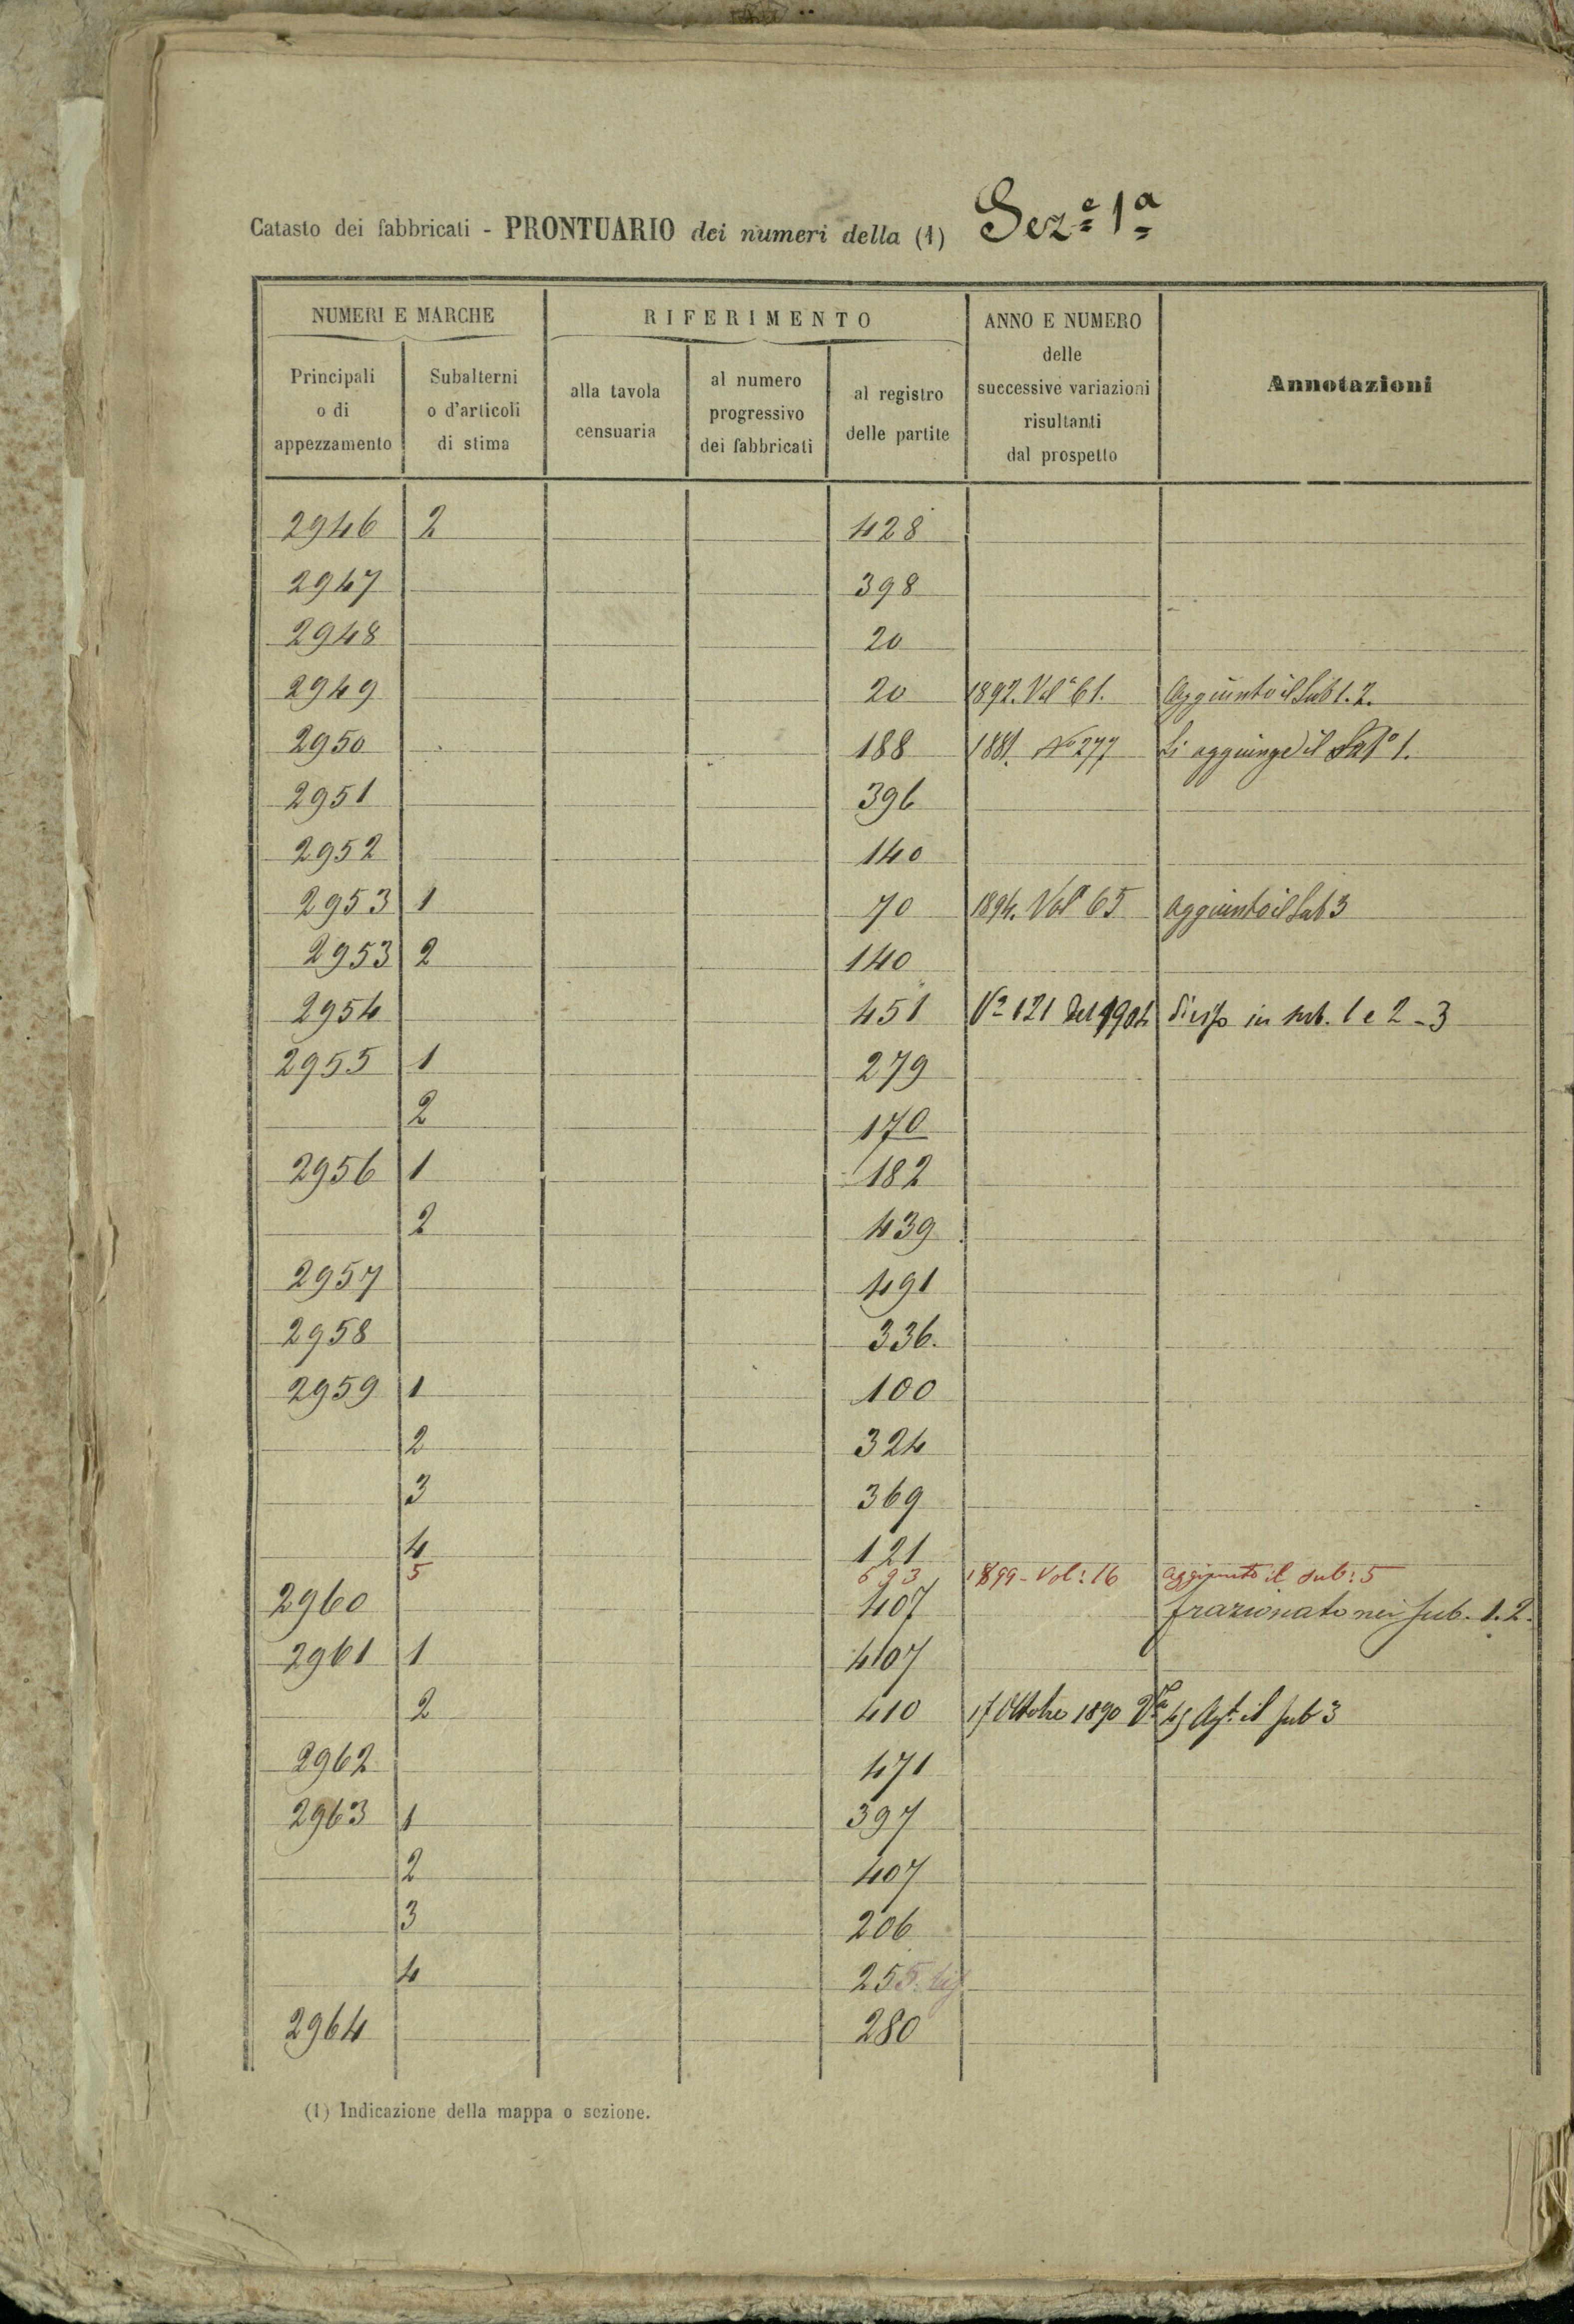 Catasto dei fabbricati - PRONTUARIO dei numeri della (1) Sez.e 1a
NUMERI E MARCHE
RIFERIMENTO
ANNO E NUMERO delle successive variazioni risultanti dal prospetto
Annotazioni
Principali o di appezzamento
Subalterni o d'articoli di stima
alla tavola censuaria
al numero progressivo dei fabbricati
al registro delle partite
2946 2 428
2947 398
2948 20
2949 20 1892. Vole 61. Aggiunto il Sub 1. 2.
2950 188 1881. No 277 Si aggiunge il 1.
2951 396
2952 140
2953 1 70 1894. Vole 65 Aggiunto il Sub 3
2953 2 140
2954 451 Ve 121 del 1904 in sub. 1 e 2 - 3
2955 1 279
2 170
2956 1 182
2 439
2957 491
2958 336.
2959 1 100
2 324
3 369
4 121
5 693 1899 - Vol: 16 aggiunto il sub: 5
2960 407 frazionato nei sub. 1. 2.
2961 1 407
2 410 17 Ottobre 1890 45 Agt. il sub 3
2962 471
2963 1 397
2 407
3 206
4 255. bis
2964 280
(1) Indicazione della mappa o sezione.